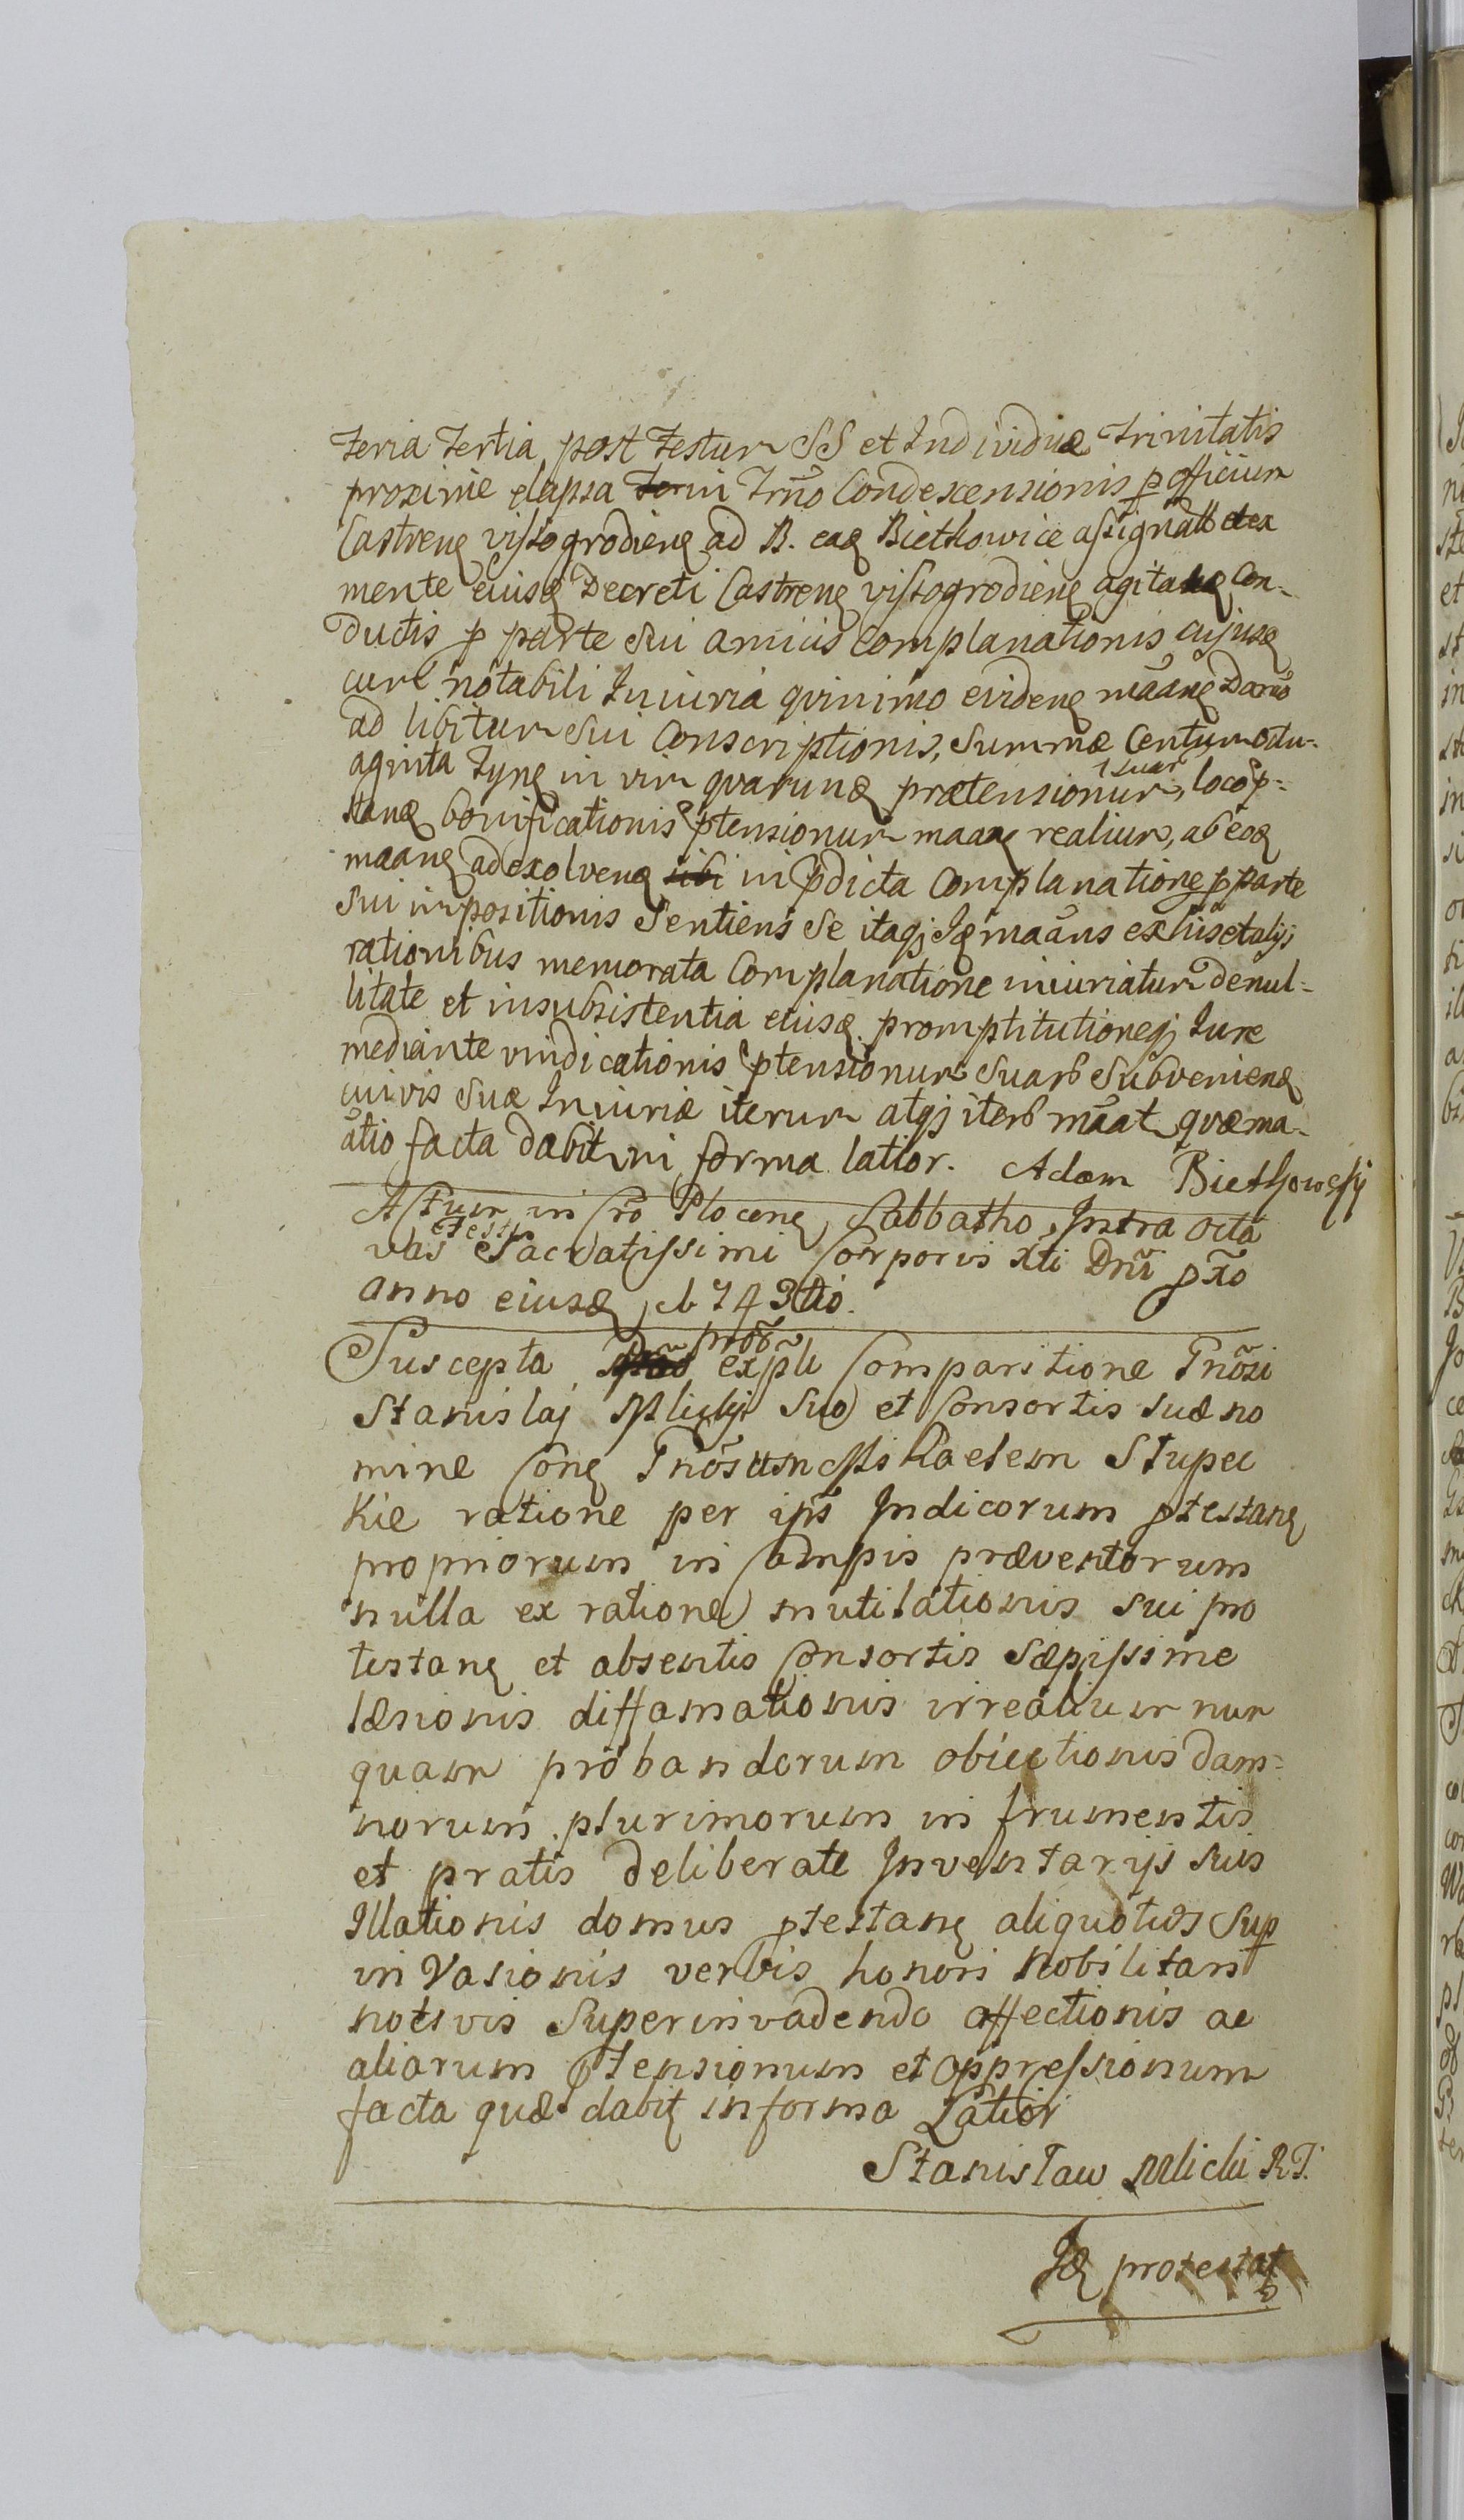 Feria Tertia post Festum SS et Individuæ Trinitatis
proxime elapsa in Trno Condescensionis p officium
Castren vissogrodien ad B. ead Biethowice assignat et ex
mente eiusd Decreti Castren vissogrodien agitan Con-
ductis p parte sui amicis Complanationis cujusd
cum notabili Iniuria quinimo eviden maan Damno
ad libitum sui Conscriptionis, Summæ Centum octu-
aginta Tyn in vim quarund prætensionum suar, loco p-
stand bonificationis ptensionum maan realium, ab eod
maan ad exolven in pdicta Complanatione p parte
sui impositionis Sentiens se itaq Id maans ex his et alijs
rationibus memorata Complanatione iniuriatum de nul-
litate et insubsistentia eiusd promptitutioneq Iure
mediante vindicationis ptensionum suarb subveniend
cuivis suæ Iniuriæ iterum atq iterb maat quæ ma-
atio facta dabit in forma latior. Adam Biethowsky
Actum in Cro Plocen Sabbatho Intra octa
vas Festi Sacratissimi Corporis Xti Dni pxo
anno eiusd 743tio.
Suscepta expli Comparitione Gnosi
Stanislaj Mlicky suo et Consortis suæ no
mine Con Gnosum Michaelem Stupec
kie ratione per ips Indicorum ptestan
propriorum in Campis præventorum
nulla ex ratione mutilationis sui pro
testan et absentis Consortis sæpissime
læsionis diffamationis irrealium nun
quam probandorum obiectionis dam-
norum plurimorum in frumentis
et pratis deliberate Inventarijs suis
Illationis domus ptestan aliquoties Sup
in Vasionis verbis honori Nobilitari
notivis Superinvadendo affectionis ac
aliarum ptensionum et oppressionum
facta quæ dabit in forma Latior
Stanisław Mlicki RT.
Id protestat